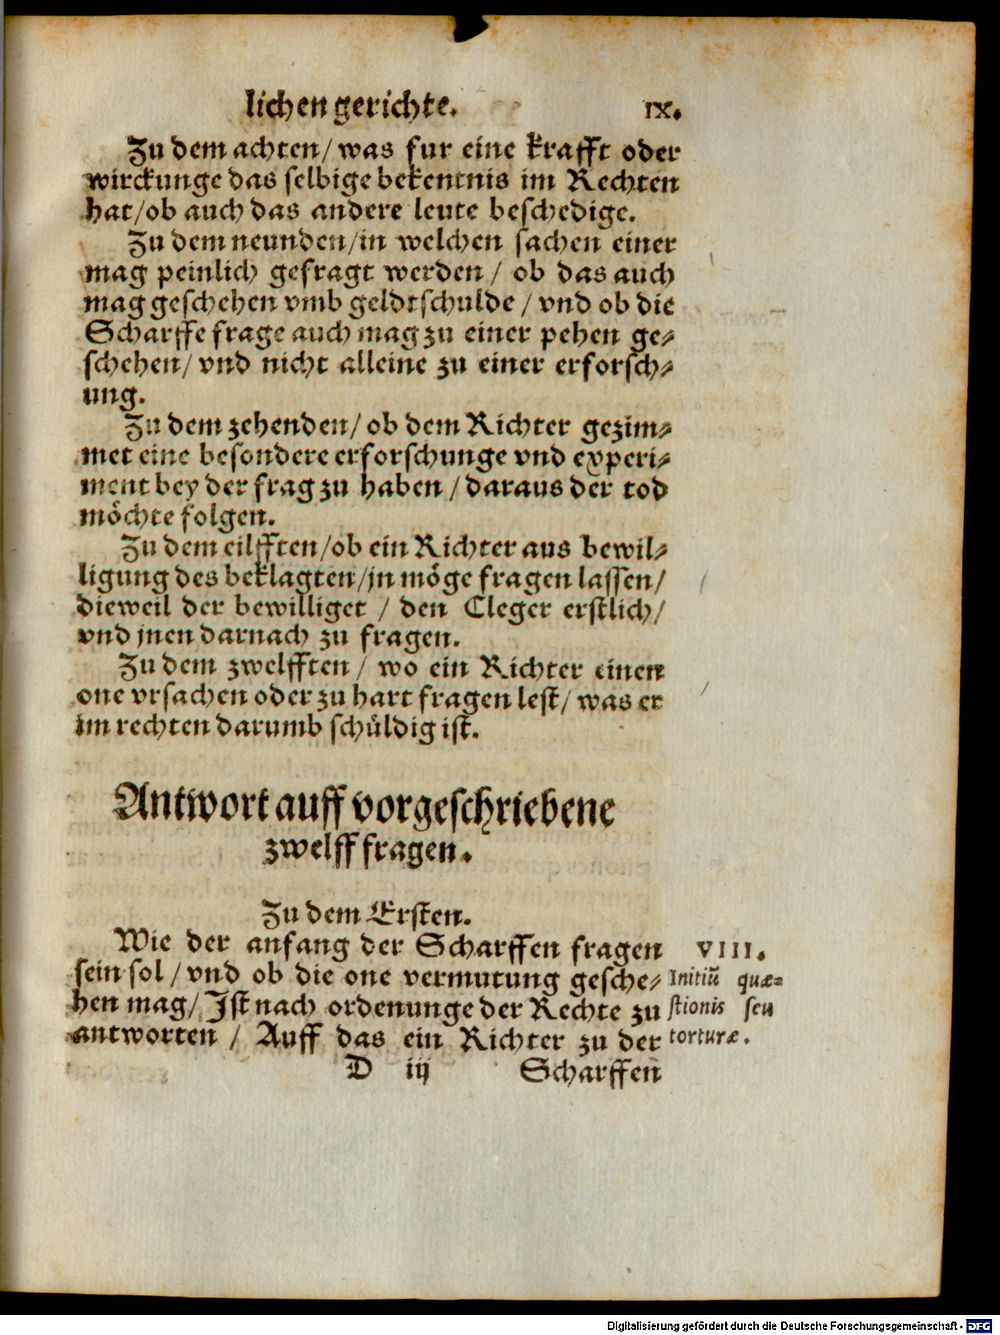 lichen gerichte. IX.
Zu dem achten/ was fur eine krafft oder
wirckunge das selbige bekentnis im Rechten
hat/ ob auch das andere leute beschedige.
Zu dem neunden/ in welchen sachen einer
mag peinlich gefragt werden / ob das auch
mag geschehen vmb geldtschulde / vnd ob die
Scharffe frage auch mag zu einer pehen ge⸗
schehen/ vnd nicht alleine zu einer erforsch⸗
ung.
Zu dem zehenden/ ob dem Richter gezim⸗
met eine besondere erforschunge vnd experi⸗
ment bey der frag zu haben / daraus der tod
möchte folgen.
Zu dem eilfften/ ob ein Richter aus bewil⸗
ligung des beklagten/ jn möge fragen lassen/
dieweil der bewilliget / den Cleger erstlich/
vnd jnen darnach zu fragen.
Zu dem zwelfften / wo ein Richter einen
one vrsachen oder zu hart fragen lest/ was er
im rechten darumb schüldig ist.
Antwort auff vorgeschriebene
zwelff fragen.
Zu dem Ersten.
Wie der anfang der Scharffen fragen
sein sol / vnd ob die one vermutung gesche⸗
hen mag/ Ist nach ordenunge der Rechte zu
antworten / Auff das ein Richter zu der
VIII.
Initiū quæ⸗
stionis seu
torturæ.
D iij Scharffen
Digitalisierung gefördert durch die Deutsche Forschungsgemeinschaft - DFG